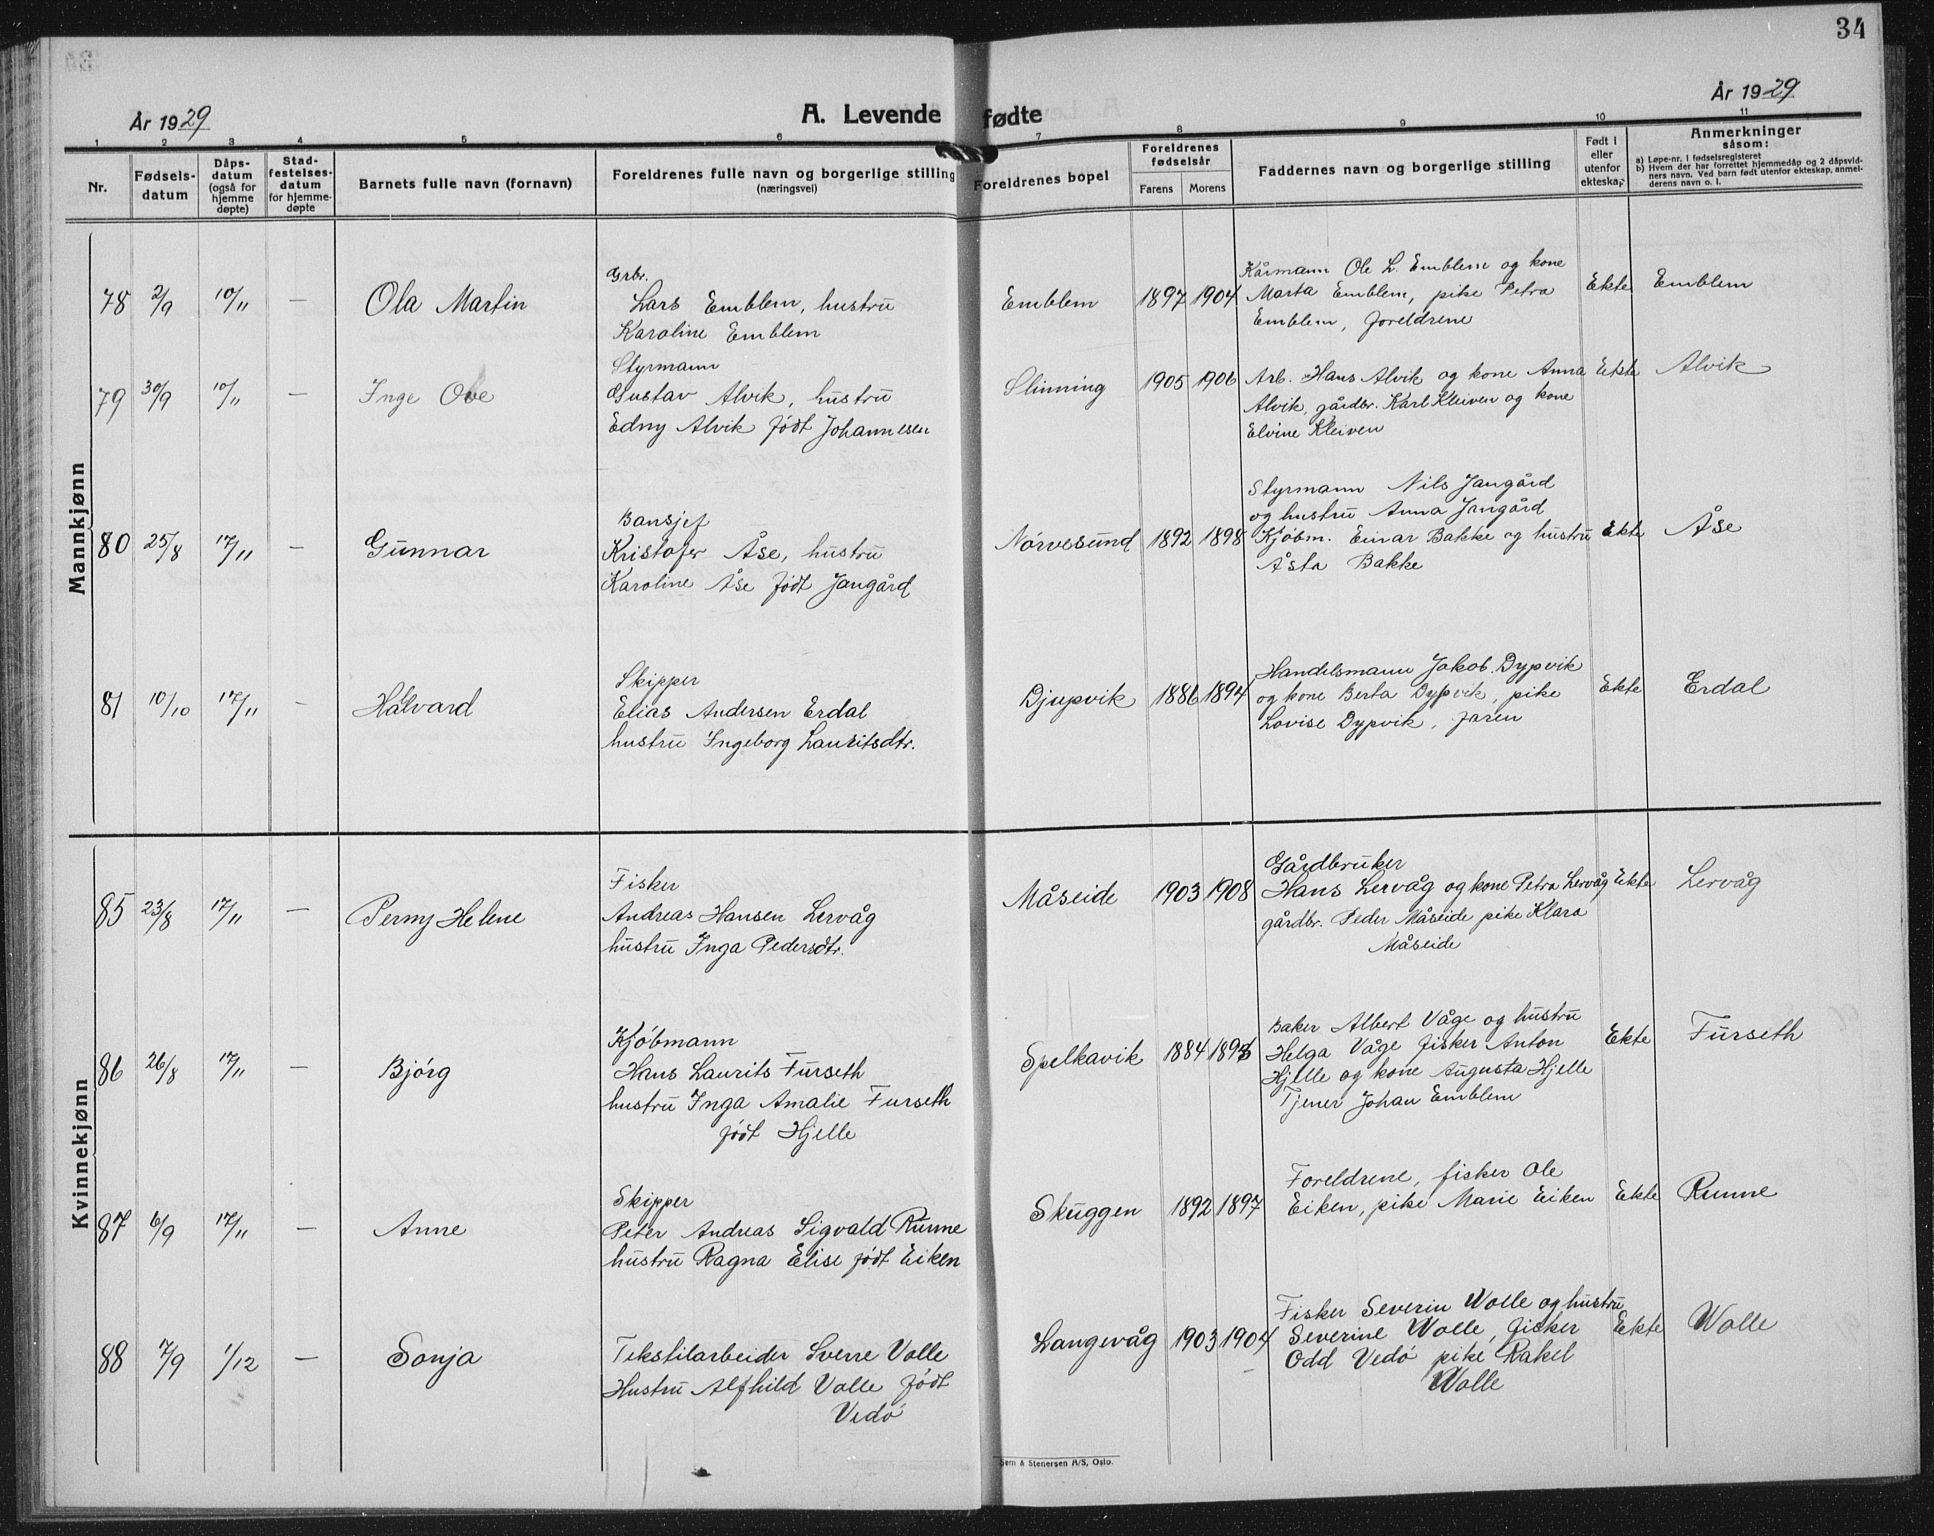 34
År 1929
A. Levende fødte
År 1929
1 2 3 4 5 6 7 8 9 10 11
Nr.
Fødsels-
datum
Dåps-
datum
(også for
hjemme
døpte)
Stad-
festelses-
datum
for hjemme-
døpte
Barnets fulle navn (fornavn)
Foreldrenes fulle navn og borgerlige stilling
(næringsvei)
Foreldrenes bopel
Foreldrenes
fødselsår
Farens Morens
Faddernes navn og borgerlige stilling
Født i
eller
utenfor
ekteskap
Anmerkninger
såsom:
a) Løpe-nr. i fødselsregisteret
b) Hvem der har forrettet hjemmedåp og 2 dåpsvid-
ners navn. Ved barn født utenfor ekteskap, anmel-
derens navn o. l.
Mannkjønn
78 2/9 10/11 — Ola Martin
Grbr.
Lars Emblem, hustru
Karoline Emblem
Emblem 1897 1904
Kårmann Ole L. Emblem og kone
Marta Emblem, pike Petra
Emblem, foreldrene
Ekte Emblem
79 30/9 10/11 — Inge Ove
Styrmann
Gustav Alvik, hustru
Edny Alvik født Johannesen
Slinning 1905 1906
Arb. Hans Alvik og kone Anna
Alvik, gårdbr. Karl Kleiven og kone
Elvine Kleiven
Ekte Alvik
80 25/8 17/11 — Gunnar
Bansjef
Kristofer Åse, hustru
Karoline Åse født Jangård
Nørvesund 1892 1898
Styrmann Nils Jangård
og hustru Anna Jangård
Kjøbm. Einar Bakke og hustru
Åsta Bakke
Ekte Åse
81 10/10 17/11 — Halvard
Skipper
Elias Andersen Erdal
hustru Ingeborg Lauritsdtr.
Djupvik 1886 1894
Handelsmann Jakob Dypvik
og kone Berta Dypvik, pike
Lovise Dypvik, faren
Ekte Erdal
Kvinnekjønn
85 23/8 17/11 — Perny Helene
Fisker
Andreas Hansen Lervåg
hustru Inga Pedersdtr.
Måseide 1903 1908
Gårdbruker
Hans Lervåg og kone Petra Lervåg
gårdbr. Peder Måseide pike Klara
Måseide
Ekte Lervåg
86 26/8 17/11 — Bjørg
Kjøbmann
Hans Laurits Furseth
hustru Inga Amalie Furseth
født Hjelle
Spelkavik 1884
Baker Albert Våge og hustru
Helga Våge fisker Anton
Hjelle og kone Augusta Hjelle
Tjener Johan Emblem
Ekte Furseth
87 6/9 17/11 — Anne
Skipper
Peter Andreas Sigvald Runne
hustru Ragna Elise født Eiken
Skuggen 1892 1897
Foreldrene, fisker Ole
Eiken, pike Marie Eiken
Ekte Runne
88 7/9 1/12 — Sonja
Tekstilarbeider Sverre Valle
Hustru Alfhild Valle født
Vedø
Langevåg 1903 1904
Fisker Severin Walle og hustru
Severine Walle, fisker
Odd Vedø pike Rakel
Walle
Ekte Walle
Sem & Stenersen A/S, Oslo.